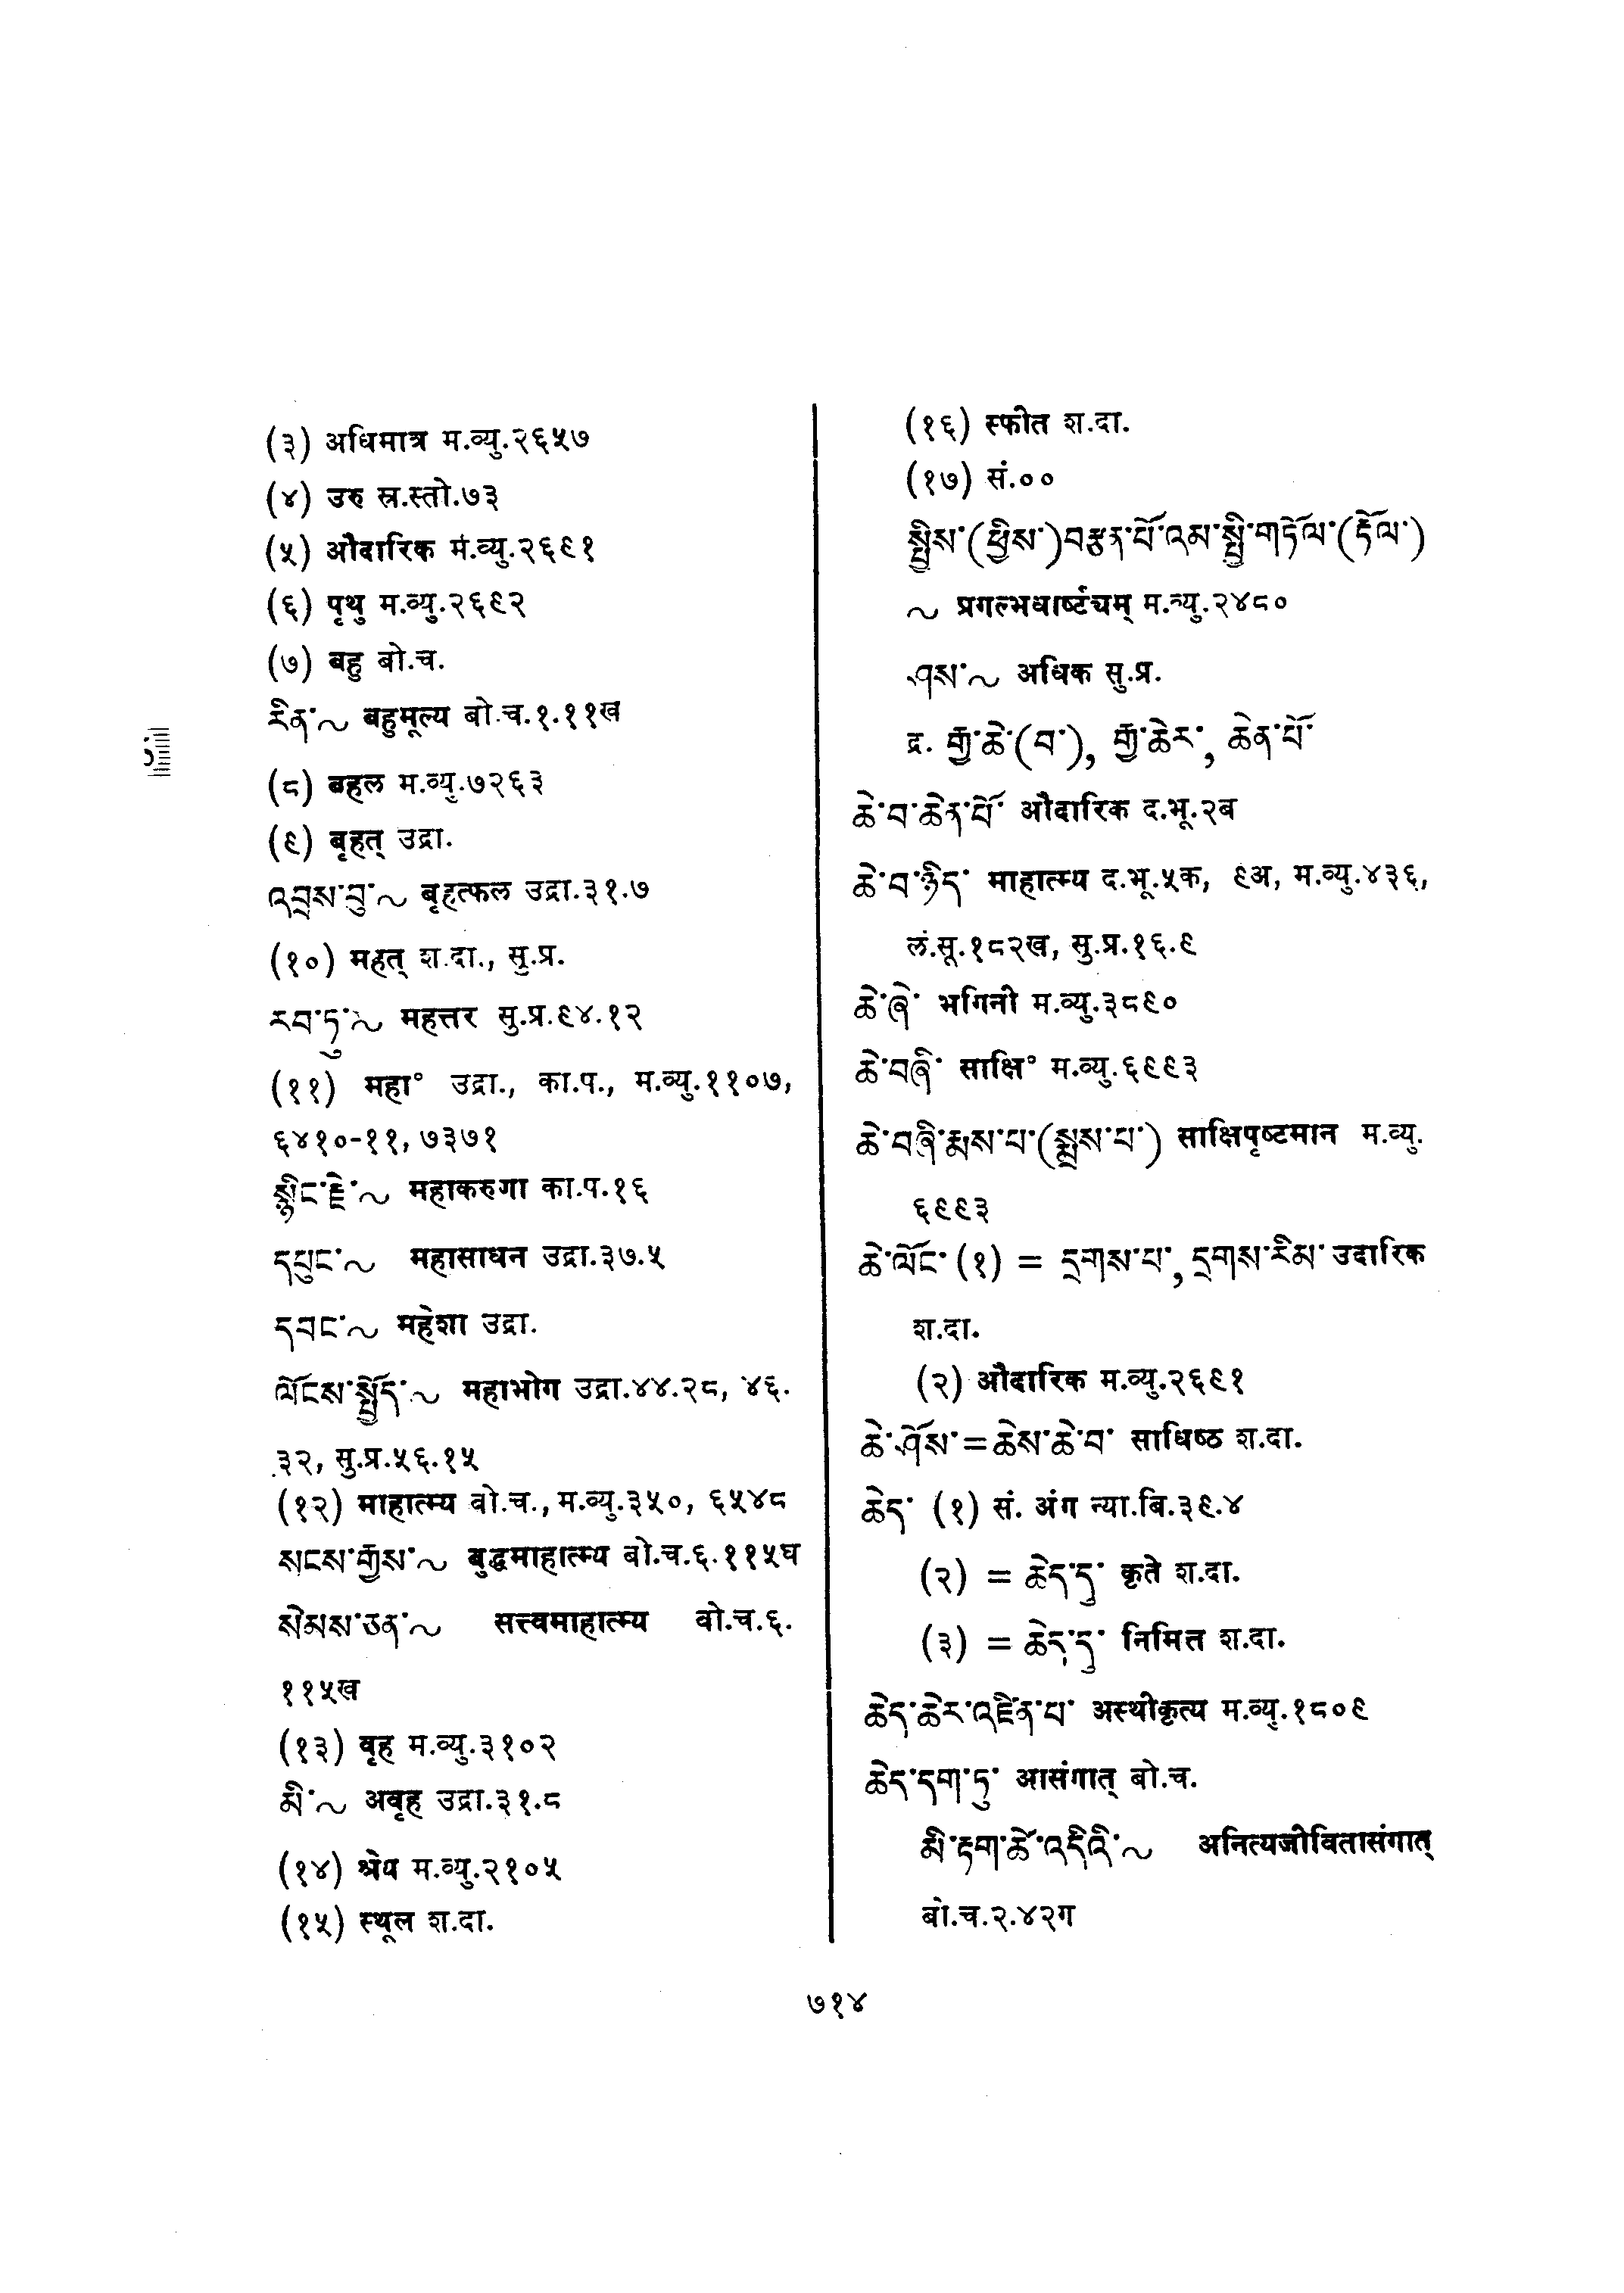 (३) अधिमात्र म.व्यु.२६५७
(४) उरु स्र.स्तो.७३
(५) औदारिक म.व्यु.२६९१
(६) पृथु म.व्यु.२६९२
(७) बहु बो.च.
རིན་~ बहुमूल्य बो.च.१.११ख
(८) बहल म.व्यु.७२६३
(९) बृहत् उद्रा.
འབྲས་བུ་~ बृहत्फल उद्रा.३१.७
(१०) महत् श.दा., सु.प्र.
རབ་ཏུ་~ महत्तर सु.प्र.९४.१२
(११) महा° उद्रा., का.प., म.व्यु.११०७,
६४१०-११, ७३७१
སྙིང་རྗེ་~ महाकरुणा का.प.१६
དཔུང་~ महासाधन उद्रा.३७.५
དབང་~ महेशा उद्रा.
ལོངས་སྤྱོད་~ महाभोग उद्रा.४४.२८, ४६.
३२, सु.प्र.५६.१५
(१२) माहात्म्य बो.च., म.व्यु.३५०, ६५४८
སངས་རྒྱས་~ बुद्धमाहात्म्य बो.च.६.११५घ
སེམས་ཅན་~ सत्त्वमाहात्म्य बो.च.६.
११५ख
(१३) वृह म.व्यु.३१०२
མི་~ अवृह उद्रा.३१.८
(१४) श्रेय म.व्यु.२१०५
(१५) स्थूल श.दा.
(१६) स्फीत श.दा.
(१७) सं.००
སྤྱིས་(ཕྱིས་)བརྩན་པོ་འམ་སྤྱི་གཏོལ་(རྟོལ་)
~ प्रगल्भधार्ष्ट्यम् म.व्यु.२४८०
ཤས་~ अधिक सु.प्र.
द्र. རྒྱ་ཆེ་(བ་), རྒྱ་ཆེར་, ཆེན་པོ་
ཆེ་བ་ཆེན་པོ་ औदारिक द.भू.२ब
ཆེ་བ་ཉིད་ माहात्म्य द.भू.५क, ९अ, म.व्यु.४३६,
लं.सू.१८२ख, सु.प्र.१६.९
ཆེ་ཞེ་ भगिनी म.व्यु.३८९०
ཆེ་བཞི་ साक्षि° म.व्यु.६९९३
ཆེ་བཞི་རྨས་པ་(སྨྲས་པ་) साक्षिपृष्टमान म.व्यु.
६९९३
ཆེ་ལོང་ (१) = དྲགས་པ་, དྲགས་རིམ་ उदारिक
श.दा.
(२) औदारिक म.व्यु.२६९१
ཆེ་ཤོས་=ཆེས་ཆེ་བ་ साधिष्ठ श.दा.
ཆེད་ (१) सं. अंग न्या.बि.३९.४
(२) = ཆེད་དུ་ कृते श.दा.
(३) = ཆེད་དུ་ निमित्त श.दा.
ཆེད་ཆེར་འཛིན་པ་ अस्थीकृत्य म.व्यु.१८०९
ཆེད་དག་ཏུ་ आसंगात् बो.च.
མི་རྟག་ཚེ་འདིའི་~ अनित्यजीवितासंगात्
बो.च.२.४२ग
७१४